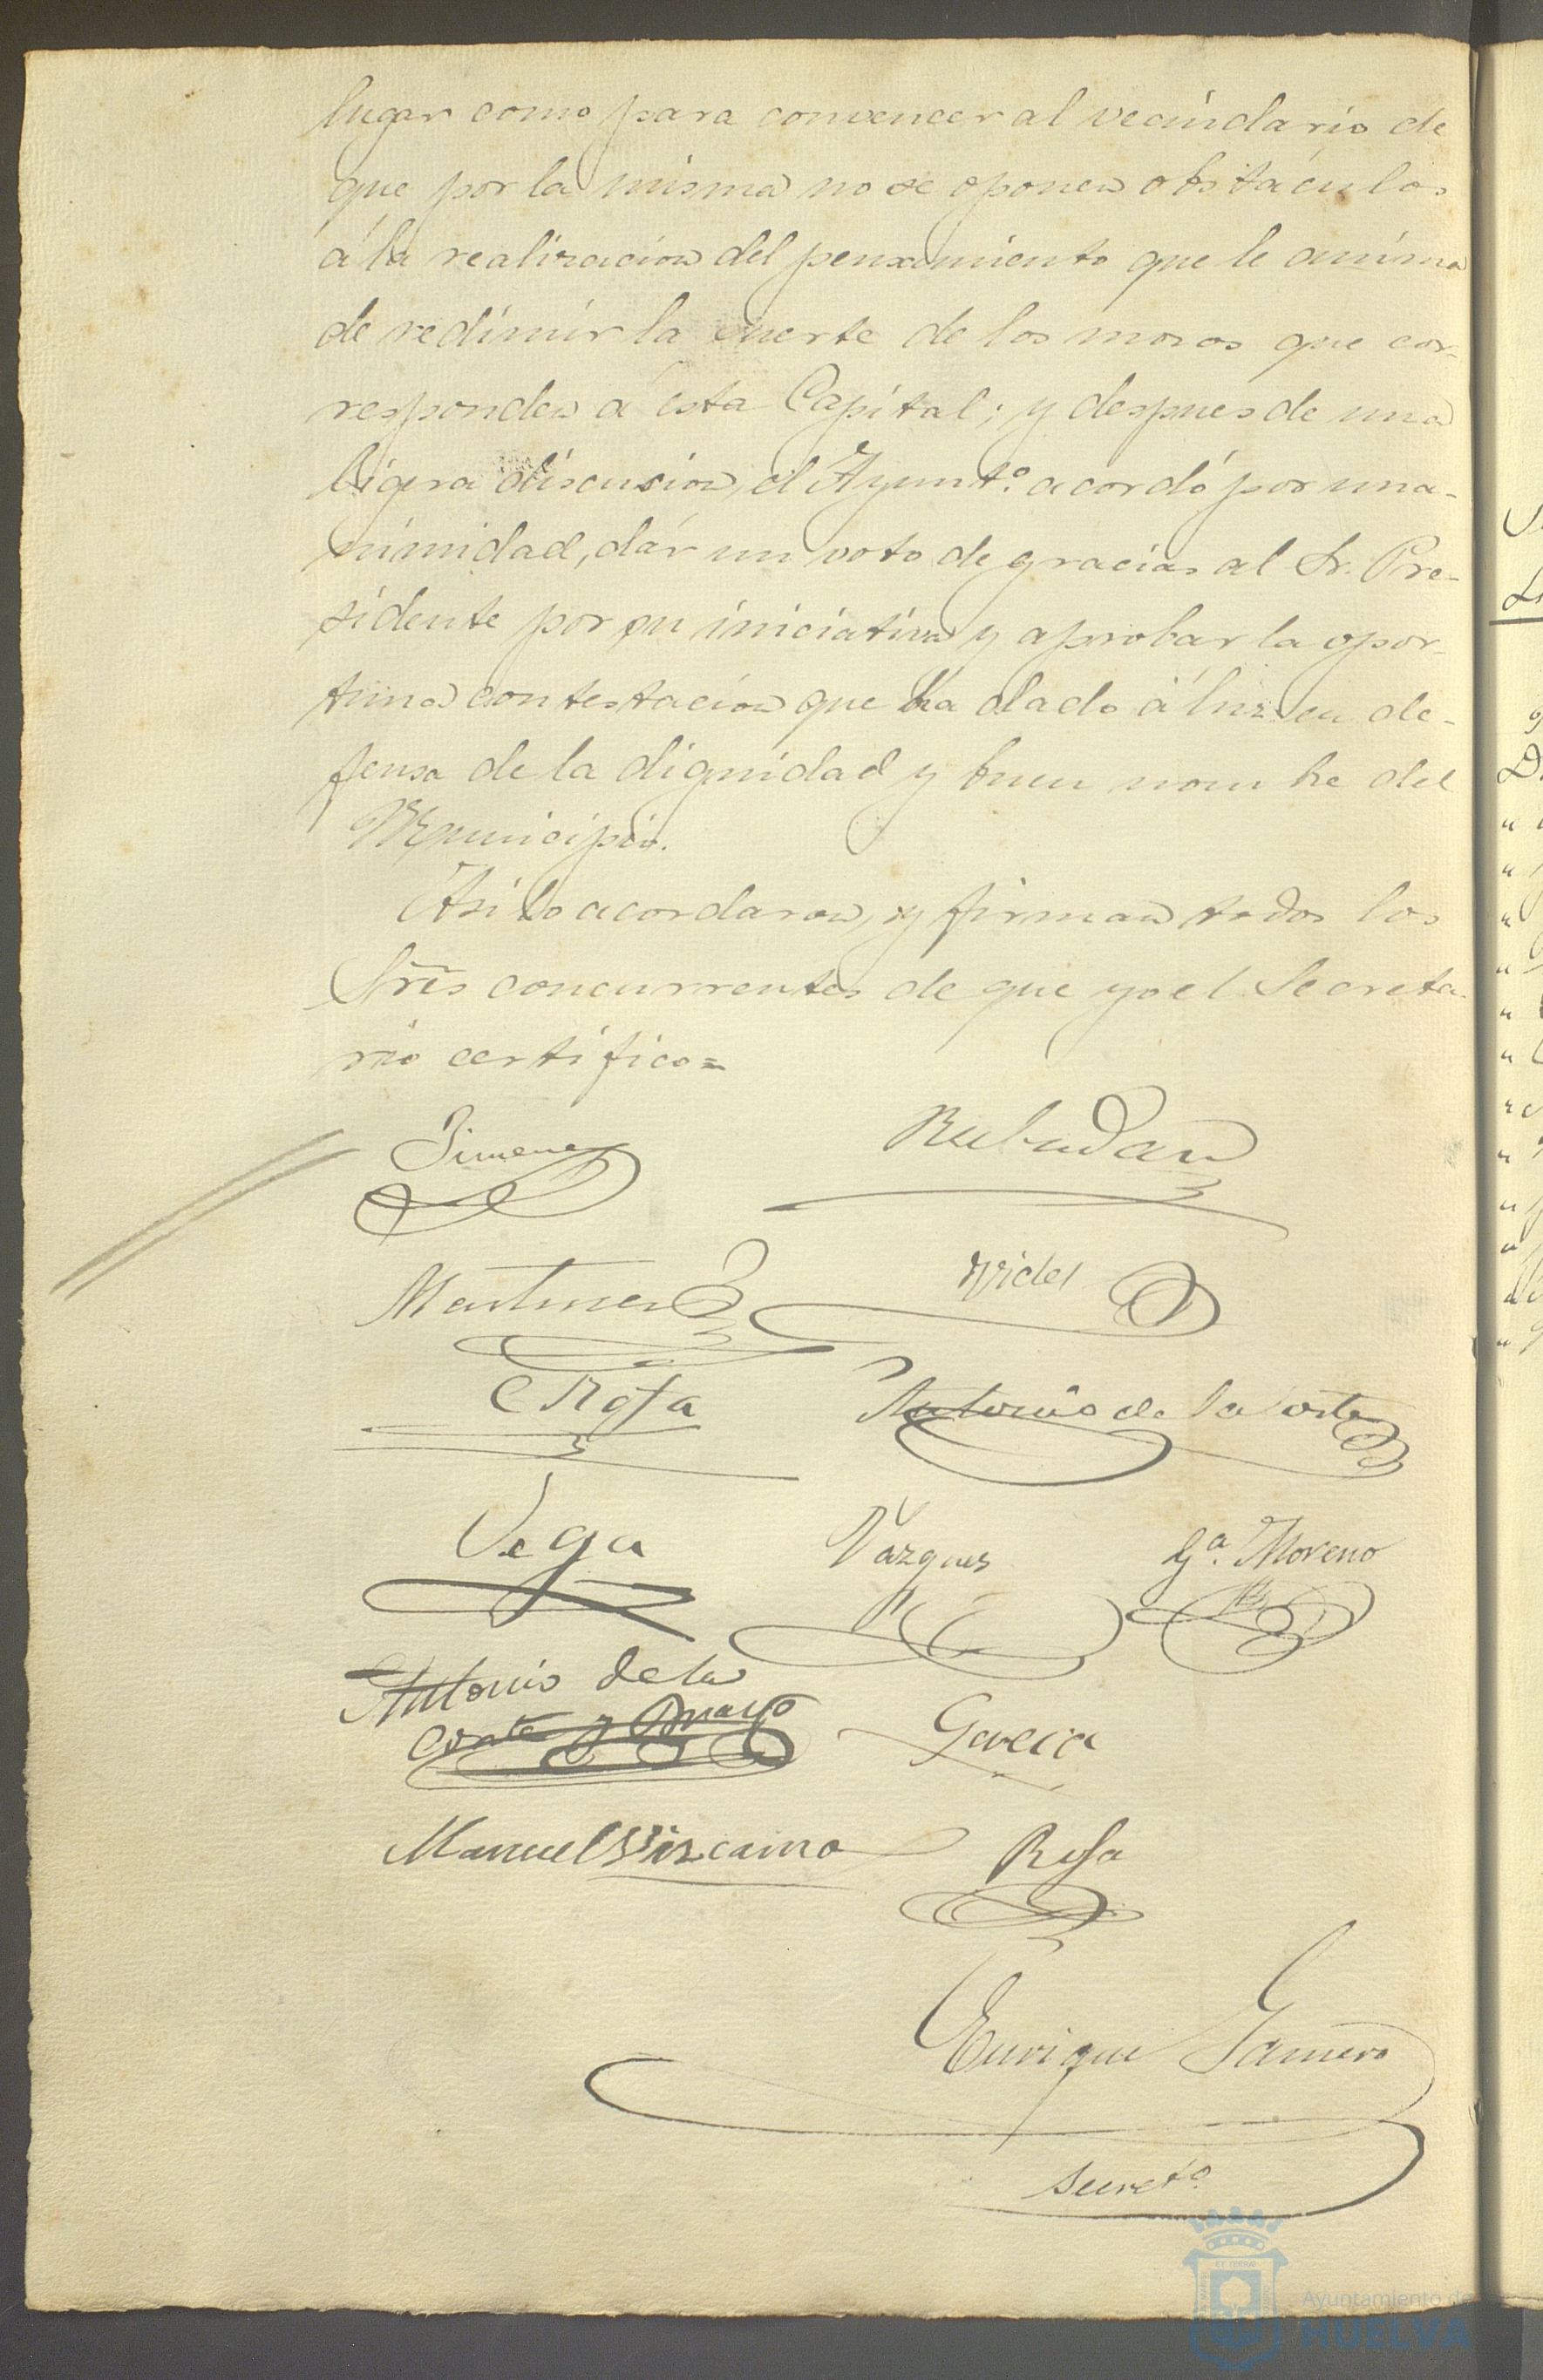 lugar como para convencer al vecindario de
que por la misma no se oponen obstáculos
á la realizacion del pensamiento que le anima
de redimir la suerte de los mozos que cor-
responden á esta Capital; y despues de una
ligera discusion, el Ayuntº. acordó por una-
nimidad, dár un voto de gracias al Sr. Pre-
sidente por su iniciativa y aprobar la opor-
tuna contestacion que ha dado á luz en de-
fensa de la dignidad y buen nombre del
Municipio.
Asi lo acordaron, y firman todos los
Sres concurrentes de que yo el Secreta-
rio certifico=
Jimenez
Martinez Vides
Rosa Antonio de la Corte
Vega Vazquez Gª. Moreno
Antonio de la
Corte y Garcia
Manuel Vizcaino Rosa
Enrique
Secretº.
Ayuntamiento de
HUELVA